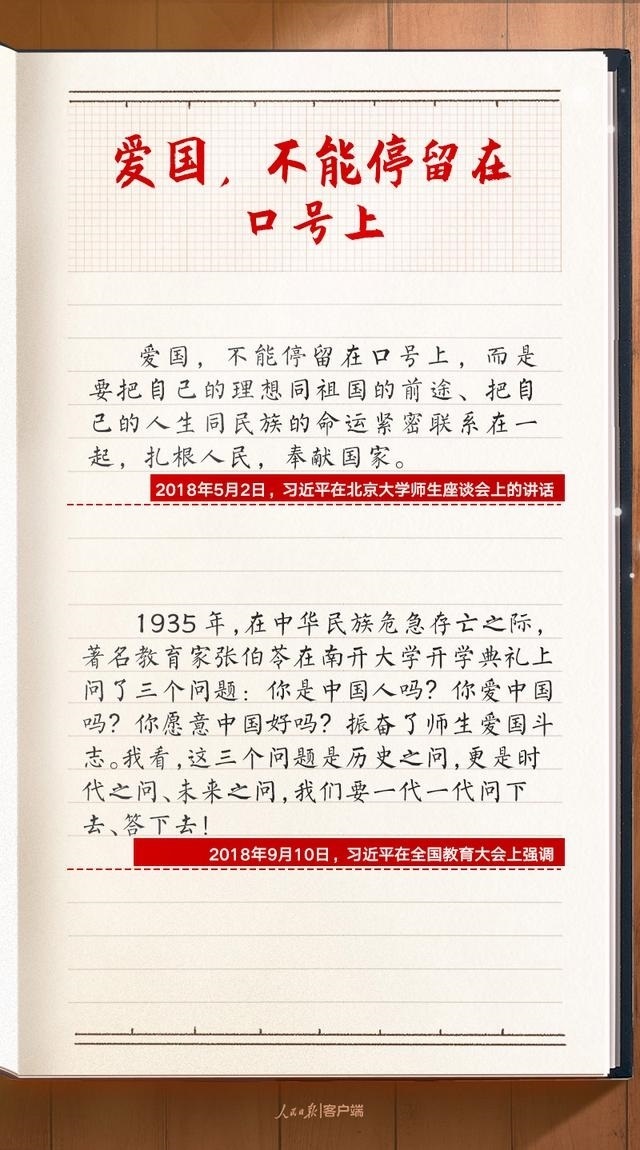 爱国，不能停留在
口号上
爱国，不能停留在口号上，而是
要把自己的理想同祖国的前途、把自
己的人生同民族的命运紧密联系在一
起，扎根人民，奉献国家。
2018年5月2日，习近平在北京大学师生座谈会上的讲话
1935年,在中华民族危急存亡之际,
著名教育家张伯苓在南开大学开学典礼上
问了三个问题：你是中国人吗？你爱中国
吗？你愿意中国好吗？振奋了师生爱国斗
志。我看,这三个问题是历史之问,更是时
代之问、未来之问,我们要一代一代问下
去、答下去！
2018年9月10日，习近平在全国教育大会上强调
人民日报|客户端